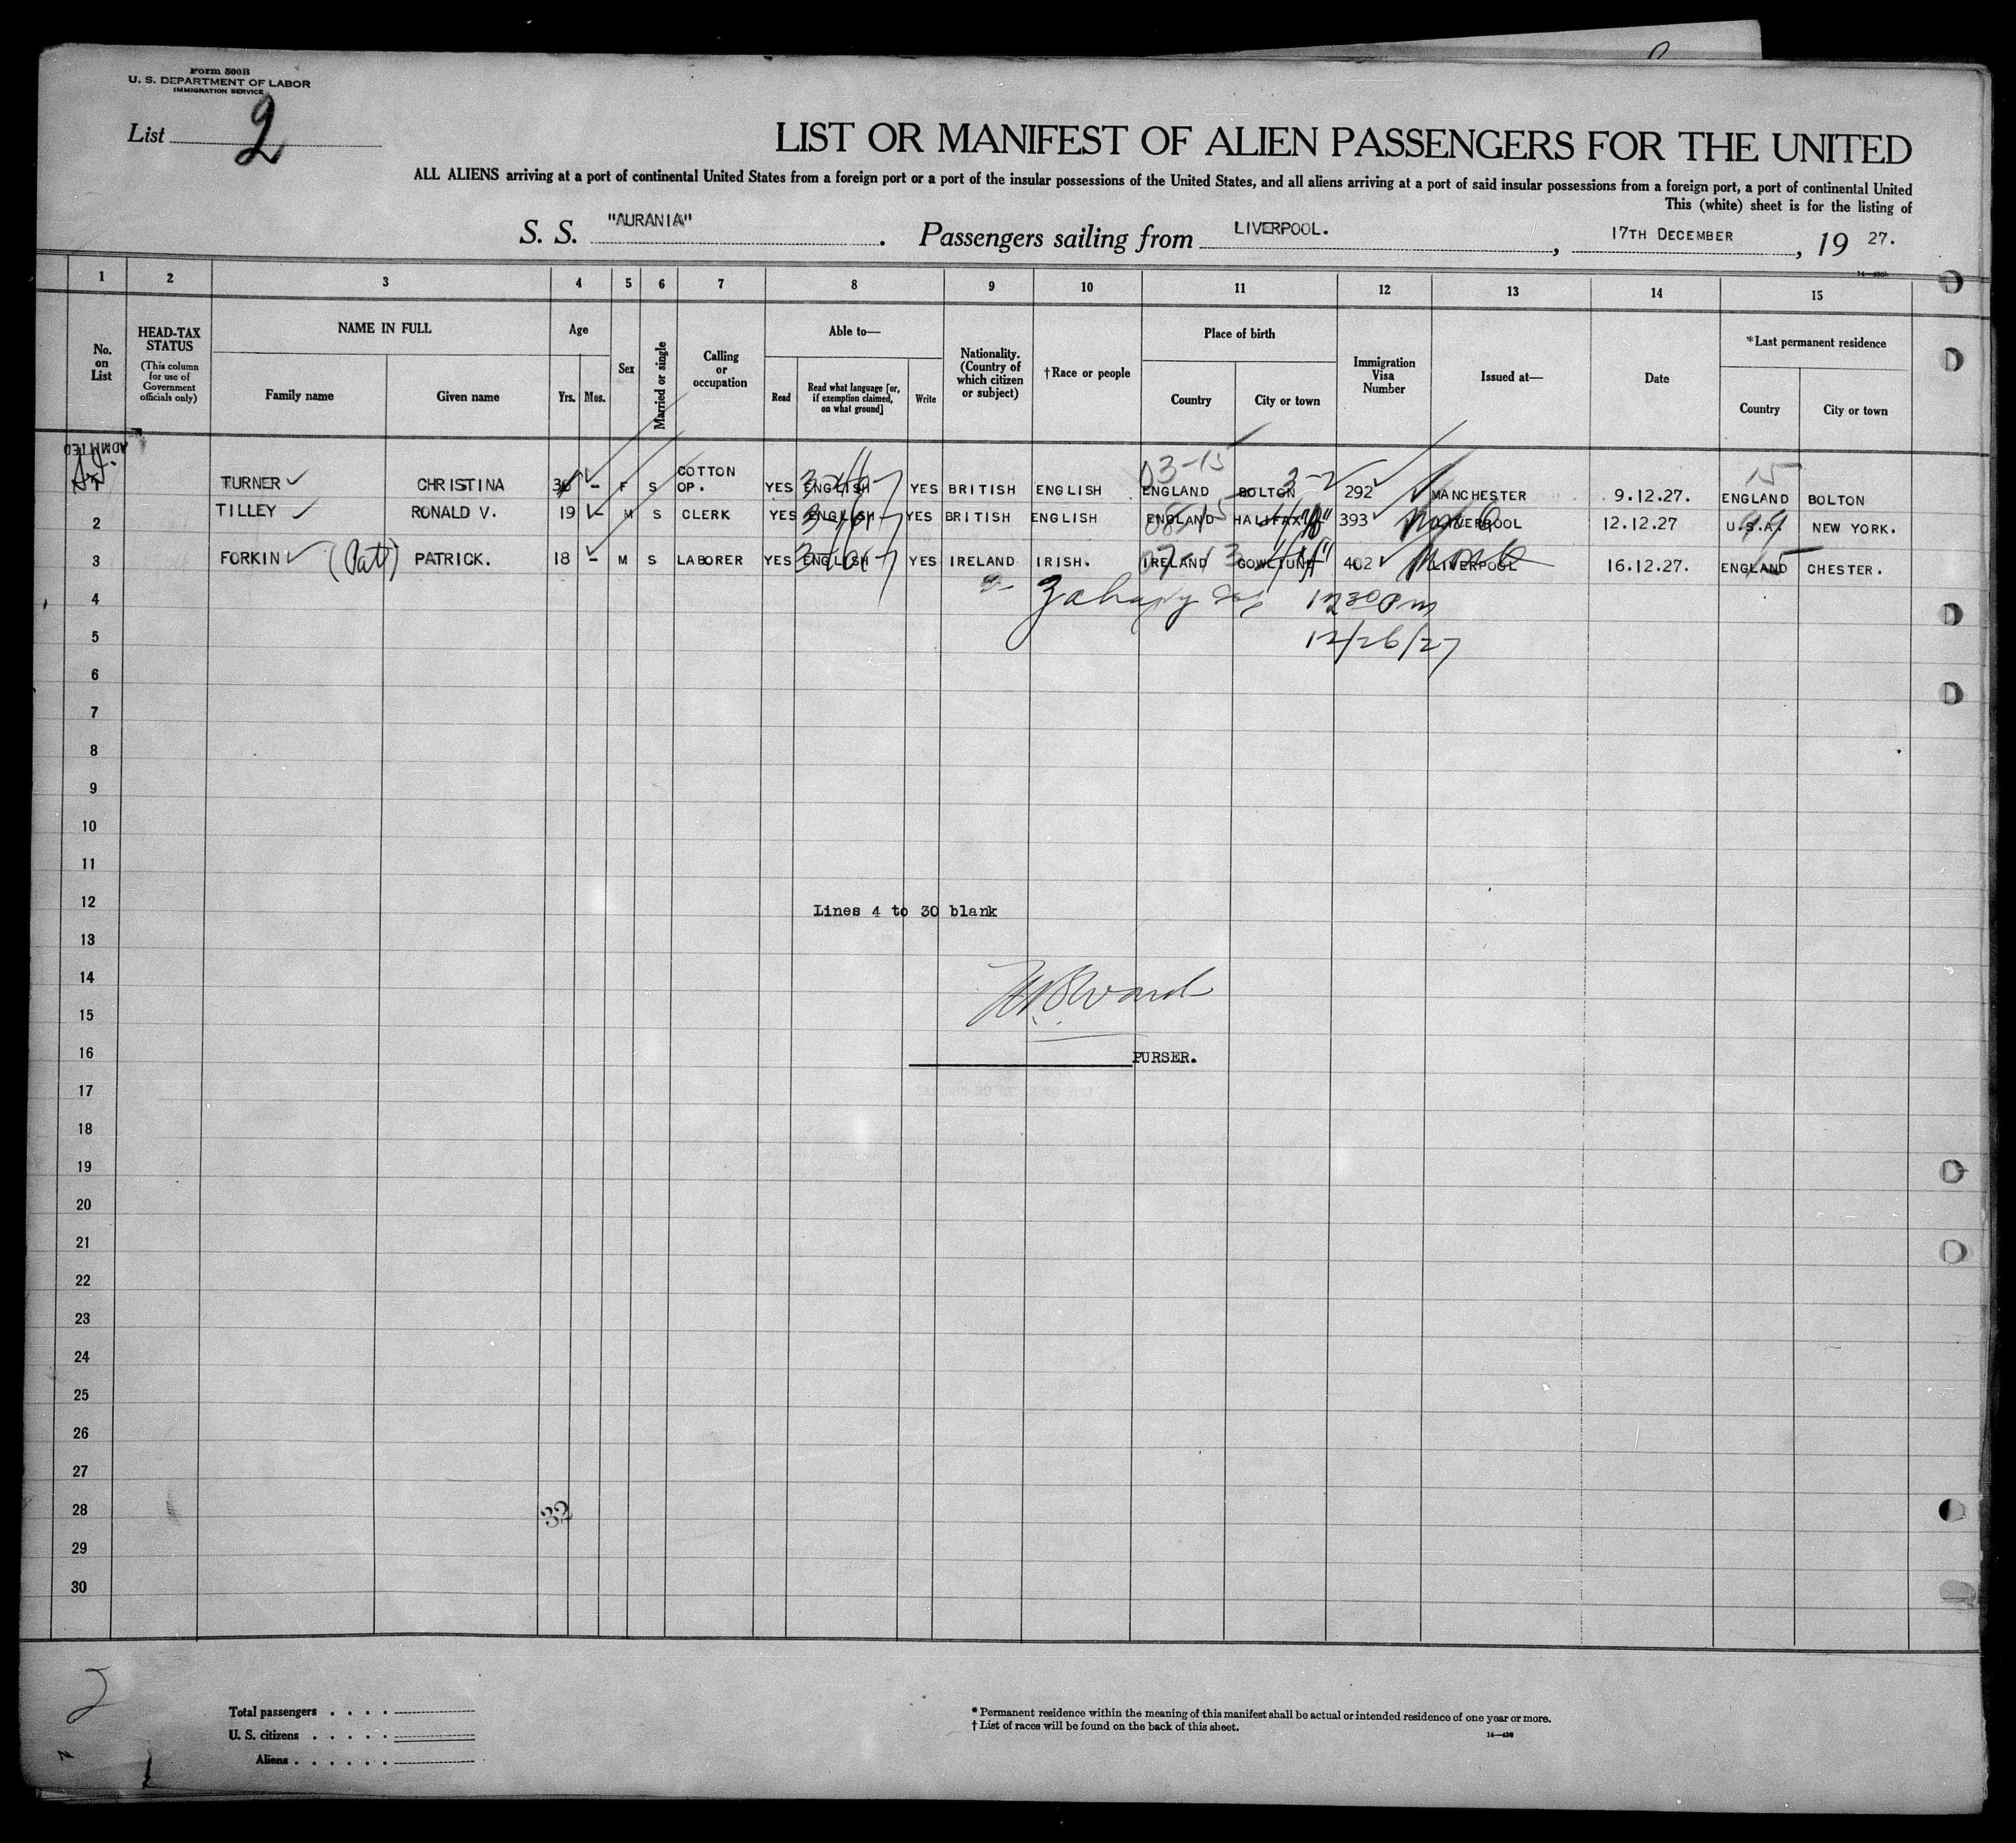 Form 500B
U. S. DEPARTMENT OF LABOR
IMMIGRATION SERVICE
List 2
LIST OR MANIFEST OF ALIEN PASSENGERS FOR THE UNITED
ALL ALIENS arriving at a port of continental United States from a foreign port or a port of the insular possessions of the United States, and all aliens arriving at a port of said insular possessions from a foreign port, a port of continental United
This (white) sheet is for the listing of
S. S. "AURANIA". Passengers sailing from LIVERPOOL., 17TH DECEMBER, 19 27.
14—430b
1 2 3 4 5 6 7 8 9 10 11 12 13 14 15
No. on List
HEAD-TAX STATUS
(This column for use of Government officials only)
NAME IN FULL
Family name
Given name
Age
Yrs. Mos.
Sex
Married or single
Calling or occupation
Able to—
Read
Read what language [or, if exemption claimed, on what ground]
Write
Nationality. (Country of which citizen or subject)
†Race or people
Place of birth
Country
City or town
Immigration Visa Number
Issued at—
Date
*Last permanent residence
Country
City or town
ADMITTED
03-15 3-2 15
1 TURNER CHRISTINA 36 - F S COTTON OP. YES ENGLISH YES BRITISH ENGLISH ENGLAND BOLTON 292 MANCHESTER 9.12.27. ENGLAND BOLTON
2 TILLEY RONALD V. 19 - M S CLERK YES ENGLISH YES BRITISH ENGLISH ENGLAND HALIFAX 393 LIVERPOOL 12.12.27 U.S.A. 99 NEW YORK.
3 FORKIN (Pat) PATRICK. 18 - M S LABORER YES ENGLISH YES IRELAND IRISH. IRELAND 402 LIVERPOOL 16.12.27. ENGLAND 15 CHESTER.
4 12 30 Pm
5 12/26/27
6
7
8
9
10
11
12 Lines 4 to 30 blank
13
14
15
16 PURSER.
17
18
19
20
21
22
23
24
25
26
27
28 32
29
30
2
Total passengers
U. S. citizens
Aliens
* Permanent residence within the meaning of this manifest shall be actual or intended residence of one year or more.
† List of races will be found on the back of this sheet.
14—430